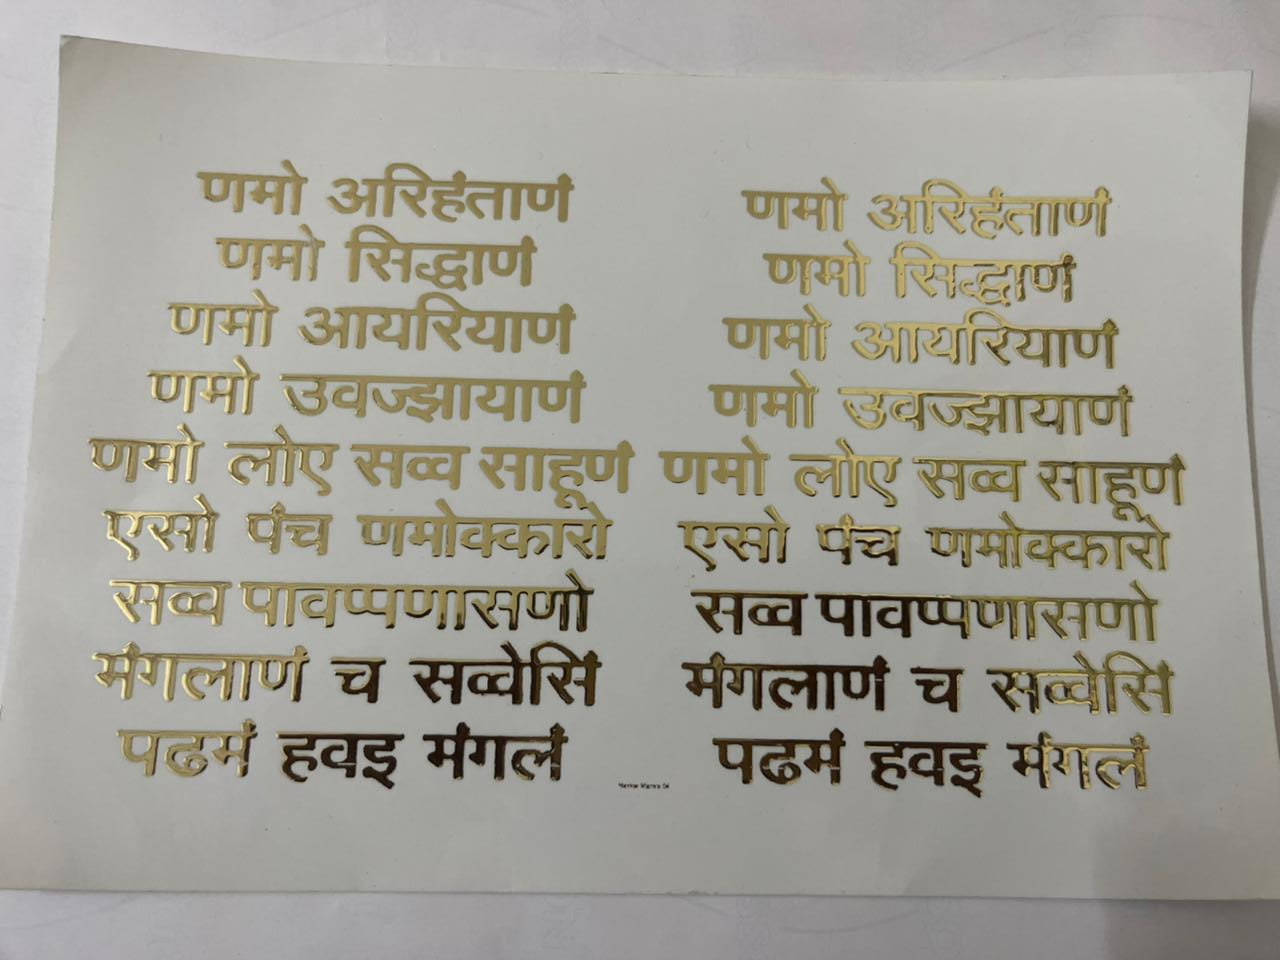 णमो अरिहंताणं
णमो सिद्धाणं
णमो आयरियाणं
णमो उवज्झायाणं
णमो लोए सव्व साहूणं
एसो पंच णमोक्कारो
सव्व पावप्पणासणो
मंगलाणं च सव्वेसिं
पढमं हवइ मंगलं
णमो अरिहंताणं
णमो सिद्धाणं
णमो आयरियाणं
णमो उवज्झायाणं
णमो लोए सव्व साहूणं
एसो पंच णमोक्कारो
सव्व पावप्पणासणो
मंगलाणं च सव्वेसिं
पढमं हवइ मंगलं